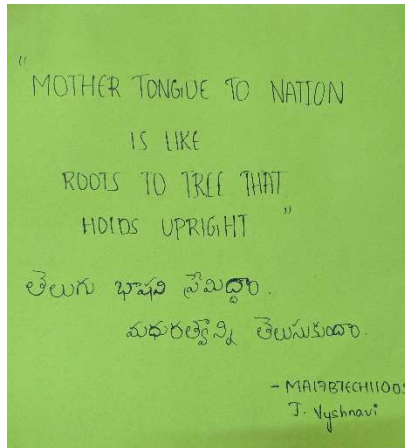 "MOTHER TONGUE TO NATION
IS LIKE
ROOTS TO TREE THAT
HOLDS UPRIGHT"
తెలుగు భాషని ప్రేమిద్దాం.
మధురత్వాన్ని తెలుసుకుందాం.
- MA17BTECH11005
J. Vyshnavi